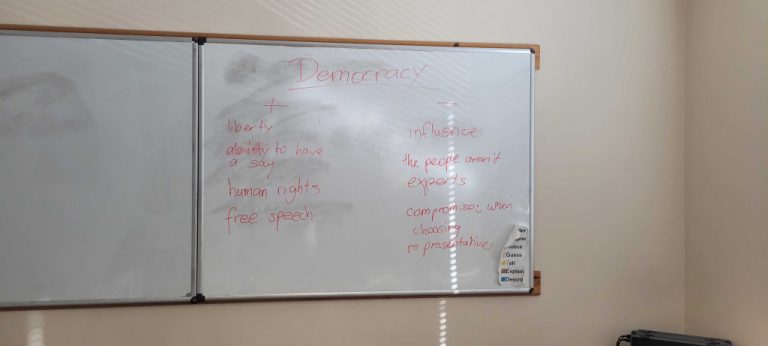 Democracy
+
−
liberty
ability to have
a say
human rights
free speech
influence
the people aren't
experts
compromises when
choosing
representatives
Guess
Tell
Explain